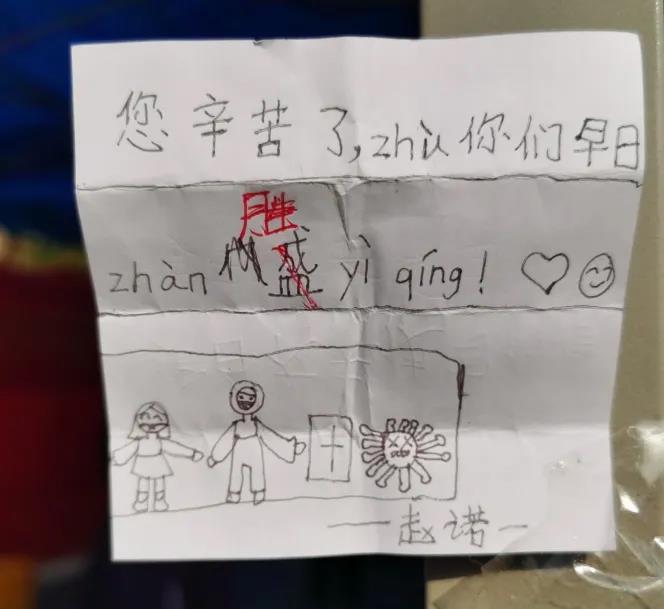 您辛苦了,zhù你们早日
胜
zhàn盛yì qíng!
——赵诺一